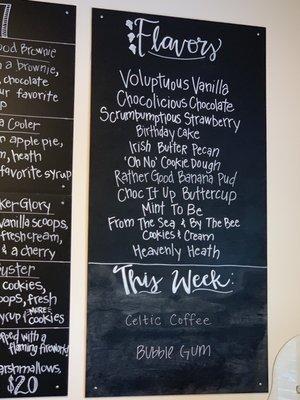 ood Brownie
n a brownie,
chocolate
ur favorite
p
a Cooler
n apple pie,
m, heath
avorite syrup
ker Glory
vanilla scoops,
fresh cream,
& cherry
uster
cookies,
oops, fresh
yrup & MORE cookies
ped with a
flaming firework
arshmallows,
$20
Flavors
Voluptuous Vanilla
Chocolicious Chocolate
Scrumbumptious Strawberry
Birthday Cake
Irish Butter Pecan
'Oh No' Cookie Dough
Rather Good Banana Pud
Choc It Up Buttercup
Mint To Be
From The Sea & By The Bee
Cookies & Cream
Heavenly Heath
This Week:
Celtic Coffee
Bubble Gum